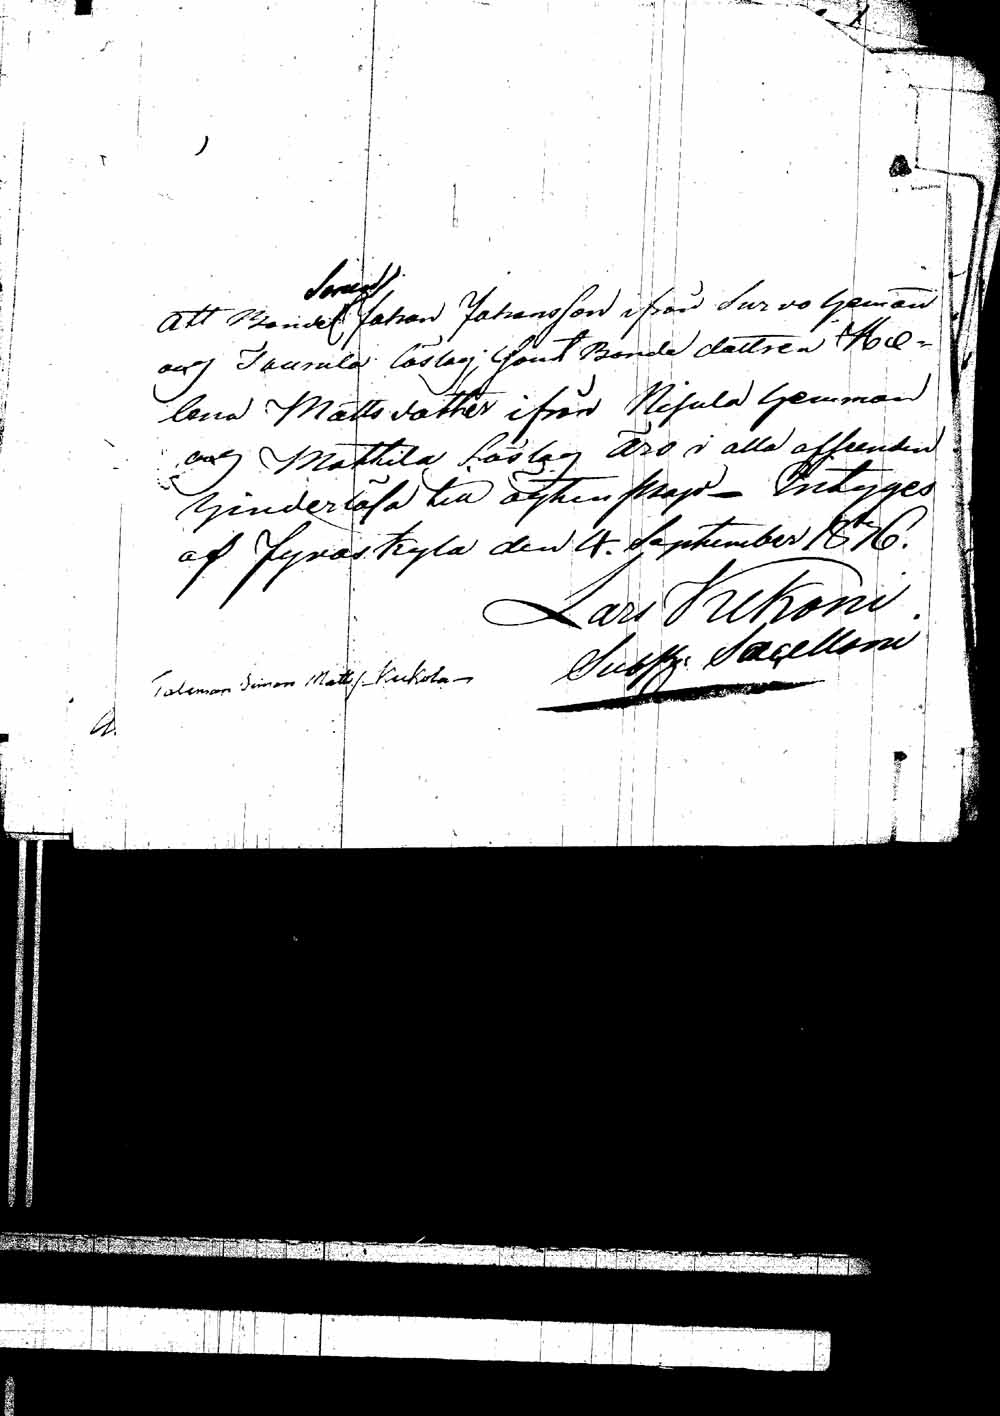 Sonen
att Bonde Johan Johansson ifrån Survo Heman
aug Taurula låslag, samt Bonde dattren He=
lena Matts datter ifrån Nisula Hemman
aug Mattila Låslag äro i alla affeenden
hinderlåsa till ächtenskap – Intyges
af Jyväskyla den 4. September 1876.
Lars Kukoni
Sacelloni
Taleman Simon Matts/. Kukola